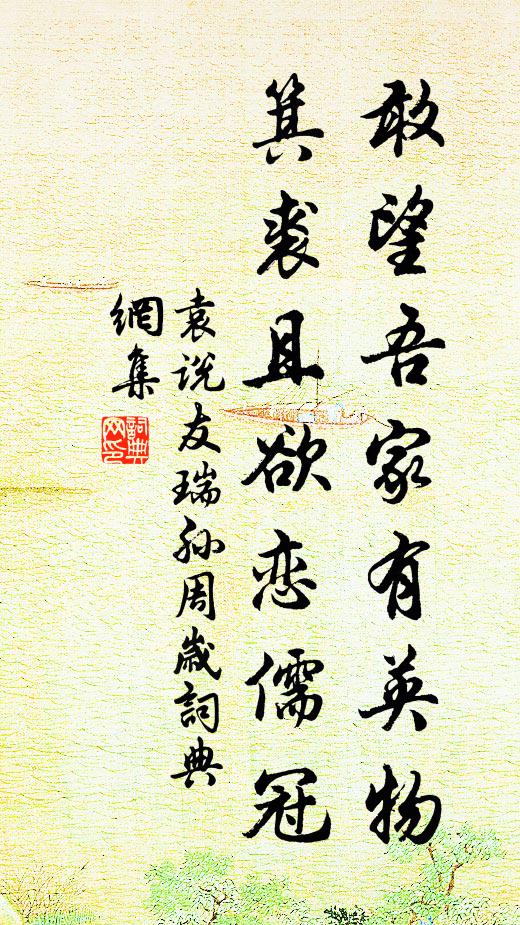 敢望吾家有英物
箕裘且欲恋儒冠
袁说友瑞孙周岁詞典
網集
詞典
网印